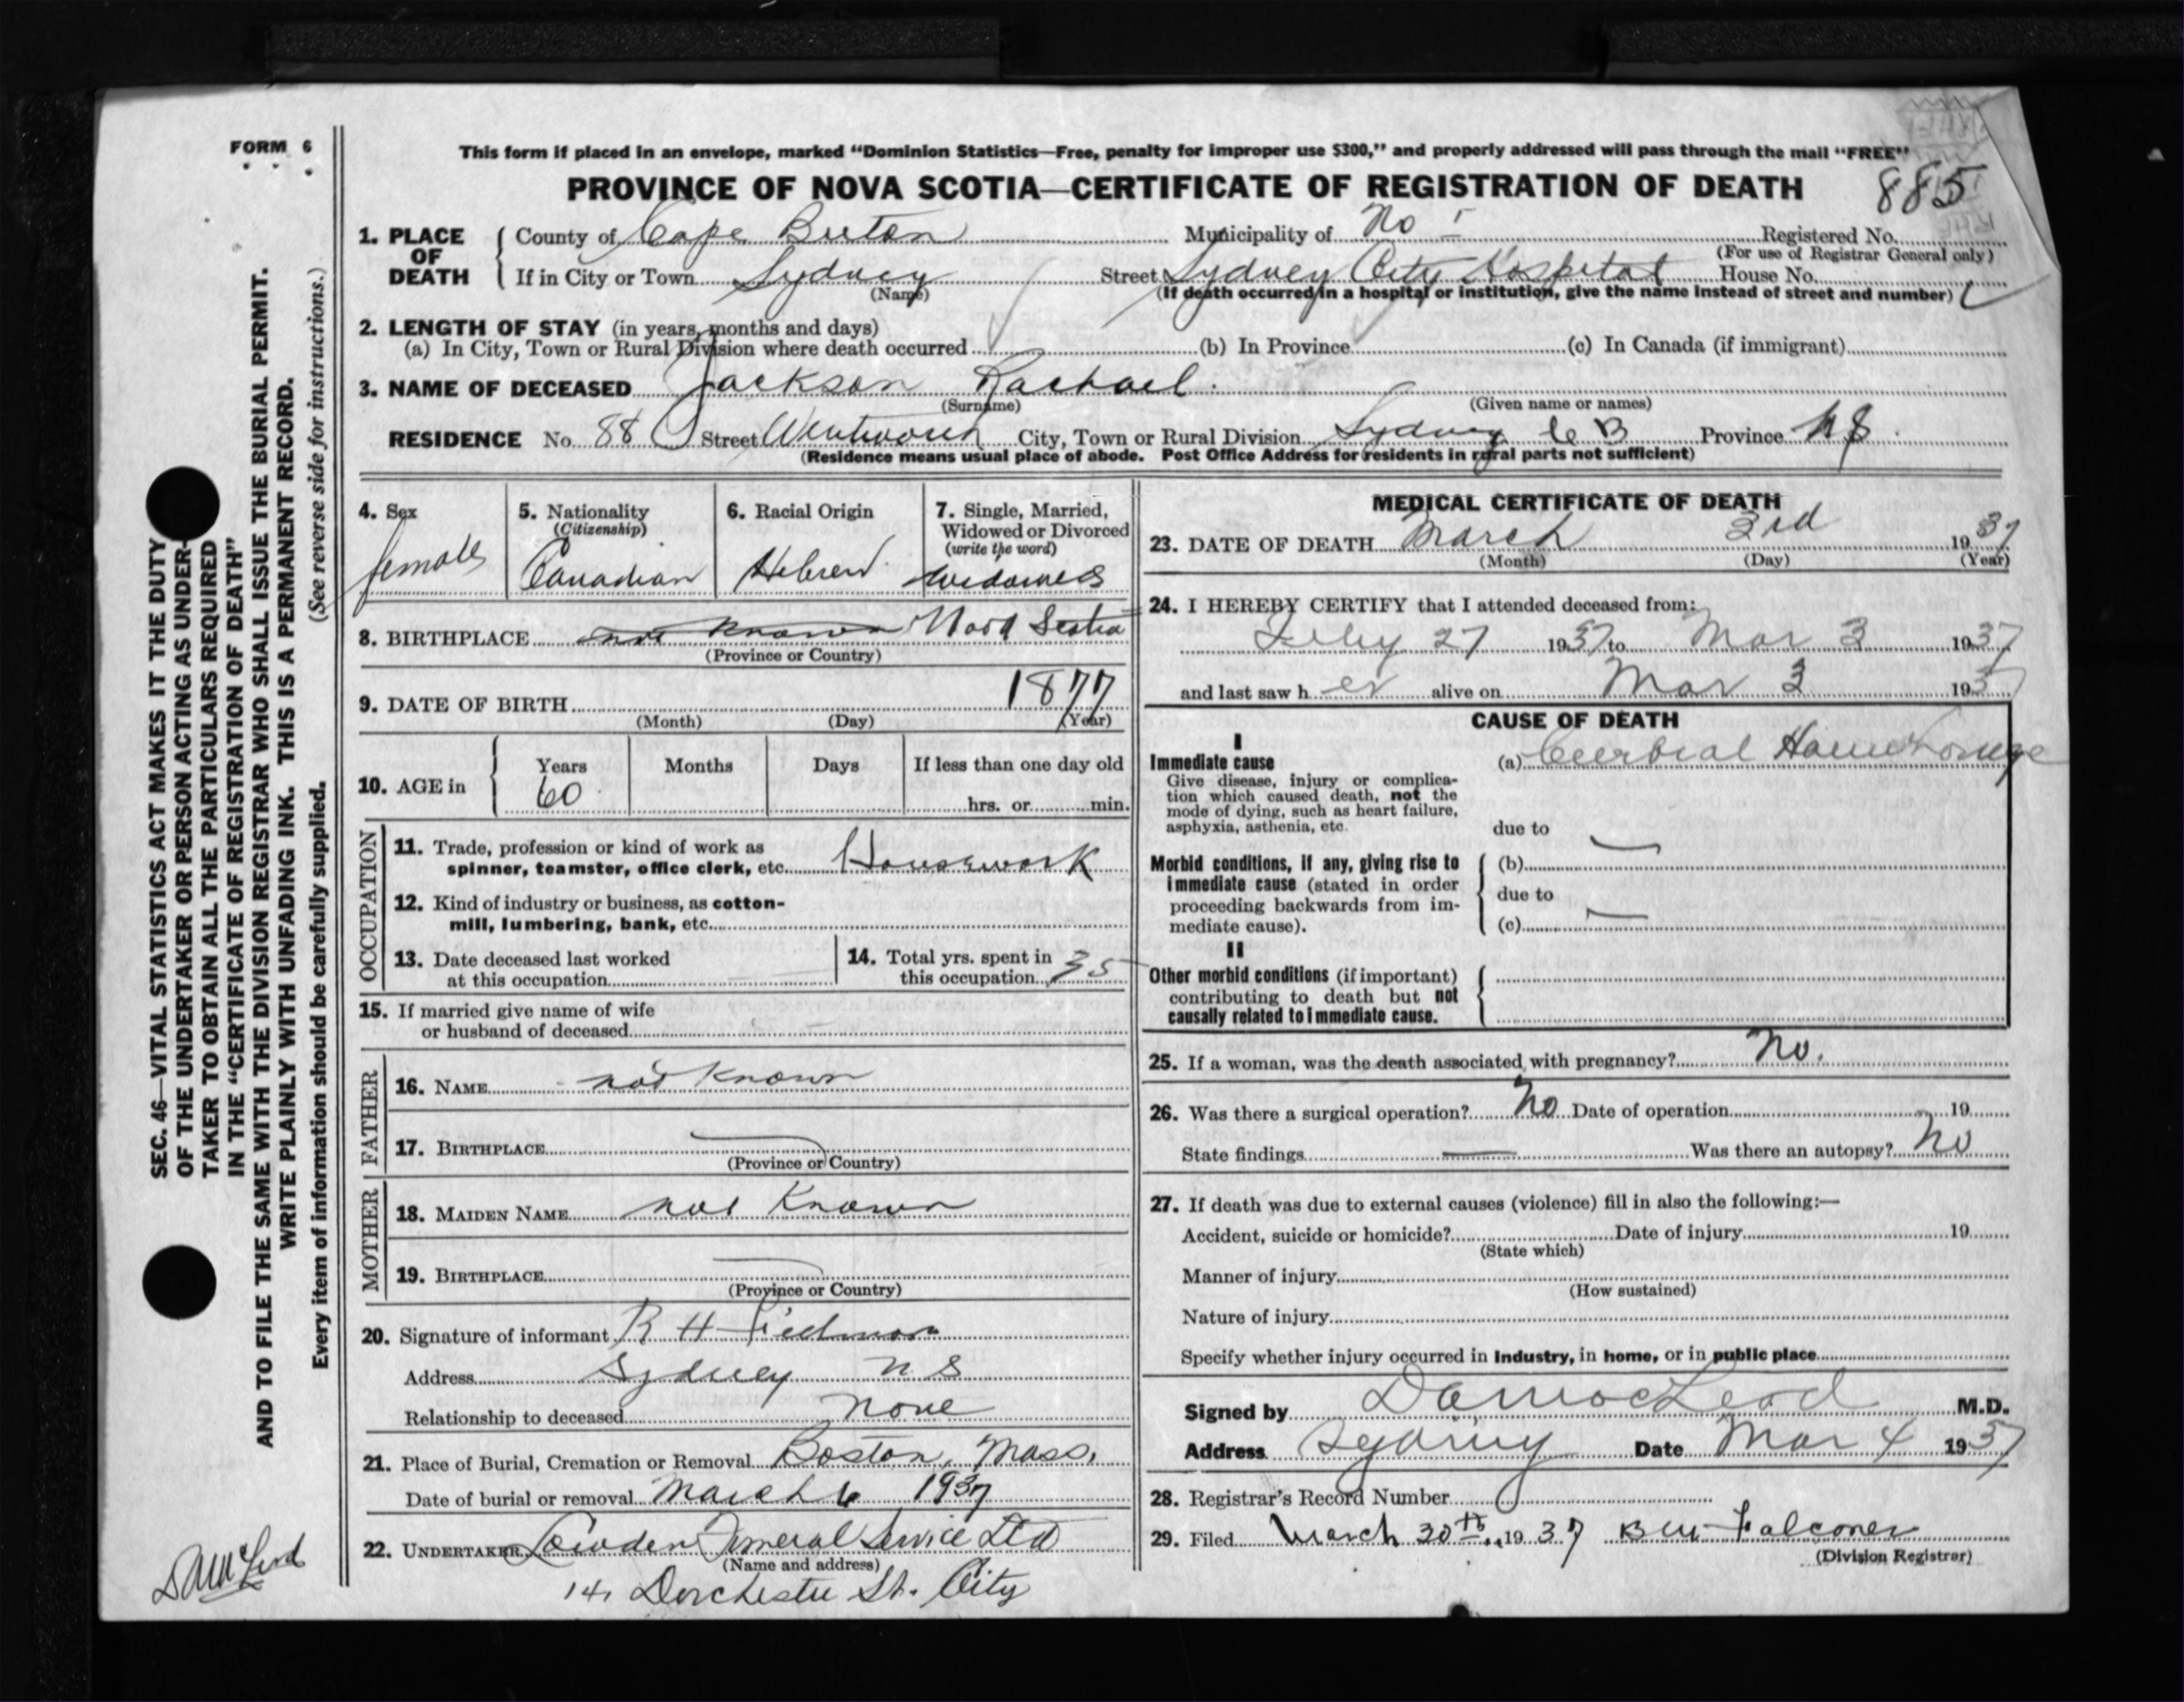 FORM 6
This form if placed in an envelope, marked “Dominion Statistics—Free, penalty for improper use $300,” and properly addressed will pass through the mail “FREE”
PROVINCE OF NOVA SCOTIA—CERTIFICATE OF REGISTRATION OF DEATH 885
1. PLACE OF DEATH County of Cape Breton Municipality of No Registered No.
(For use of Registrar General only)
If in City or Town Sydney Street Sydney City Hospital House No.
(Name) (If death occurred in a hospital or institution, give the name instead of street and number)
2. LENGTH OF STAY (in years, months and days)
(a) In City, Town or Rural Division where death occurred (b) In Province (c) In Canada (if immigrant)
3. NAME OF DECEASED Jackson Rachael
(Surname) (Given name or names)
RESIDENCE No. 88 Street Wentworth City, Town or Rural Division Sydney C B Province N S
(Residence means usual place of abode. Post Office Address for residents in rural parts not sufficient)
4. Sex female
5. Nationality (Citizenship) Canadian
6. Racial Origin Hebrew
7. Single, Married, Widowed or Divorced (write the word) widowed
8. BIRTHPLACE not known Nova Scotia
(Province or Country)
9. DATE OF BIRTH 1877
(Month) (Day) (Year)
10. AGE in Years 60 Months Days If less than one day old
hrs. or min.
OCCUPATION
11. Trade, profession or kind of work as
spinner, teamster, office clerk, etc. Housework
12. Kind of industry or business, as cotton-
mill, lumbering, bank, etc.
13. Date deceased last worked
at this occupation
14. Total yrs. spent in
this occupation 35
15. If married give name of wife
or husband of deceased
FATHER
16. NAME not known
17. BIRTHPLACE
(Province or Country)
MOTHER
18. MAIDEN NAME not known
19. BIRTHPLACE
(Province or Country)
20. Signature of informant R H
Address Sydney N S
Relationship to deceased none
21. Place of Burial, Cremation or Removal Boston, Mass.
Date of burial or removal March 6 1937
22. UNDERTAKER Lowden Funeral Service Ltd
(Name and address)
141 Dorchester St. City
MEDICAL CERTIFICATE OF DEATH
23. DATE OF DEATH March 3rd 1937
(Month) (Day) (Year)
24. I HEREBY CERTIFY that I attended deceased from:
Feby 27 1937 to Mar 3 1937
and last saw h er alive on Mar 3 1937
CAUSE OF DEATH
I
Immediate cause (a) Cerebral Haemorrhage
Give disease, injury or complica-
tion which caused death, not the
mode of dying, such as heart failure,
asphyxia, asthenia, etc. due to
Morbid conditions, if any, giving rise to (b)
immediate cause (stated in order due to
proceeding backwards from im-
mediate cause). (c)
II
Other morbid conditions (if important)
contributing to death but not
causally related to immediate cause.
25. If a woman, was the death associated with pregnancy? No.
26. Was there a surgical operation? No Date of operation 19
State findings Was there an autopsy? No
27. If death was due to external causes (violence) fill in also the following:—
Accident, suicide or homicide? Date of injury 19
(State which)
Manner of injury
(How sustained)
Nature of injury
Specify whether injury occurred in industry, in home, or in public place
Signed by D A MacLeod M.D.
Address Sydney Date Mar 4 1937
28. Registrar's Record Number
29. Filed March 30th 1937 B W Falconer
(Division Registrar)
SEC. 46—VITAL STATISTICS ACT MAKES IT THE DUTY
OF THE UNDERTAKER OR PERSON ACTING AS UNDER-
TAKER TO OBTAIN ALL THE PARTICULARS REQUIRED
IN THE “CERTIFICATE OF REGISTRATION OF DEATH”
AND TO FILE THE SAME WITH THE DIVISION REGISTRAR WHO SHALL ISSUE THE BURIAL PERMIT.
WRITE PLAINLY WITH UNFADING INK. THIS IS A PERMANENT RECORD.
Every item of information should be carefully supplied. (See reverse side for instructions.)